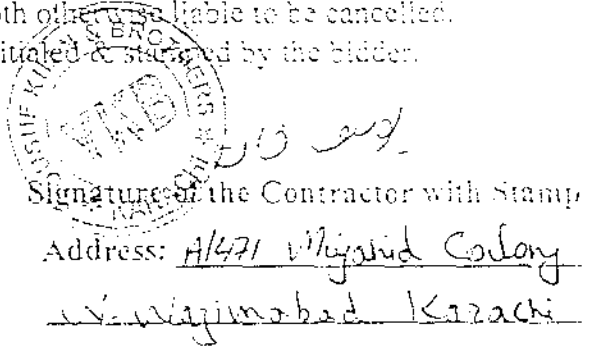 oth otherwise liable to be cancelled.
itialed & stamped by the bidder.
YOUSUF KHAN & BROTHERS ★ KARACHI
YKB
یوسف خان
Signature of the Contractor with Stamp
Address: A/471 Mujahid Colony
N. Nazimabad Karachi